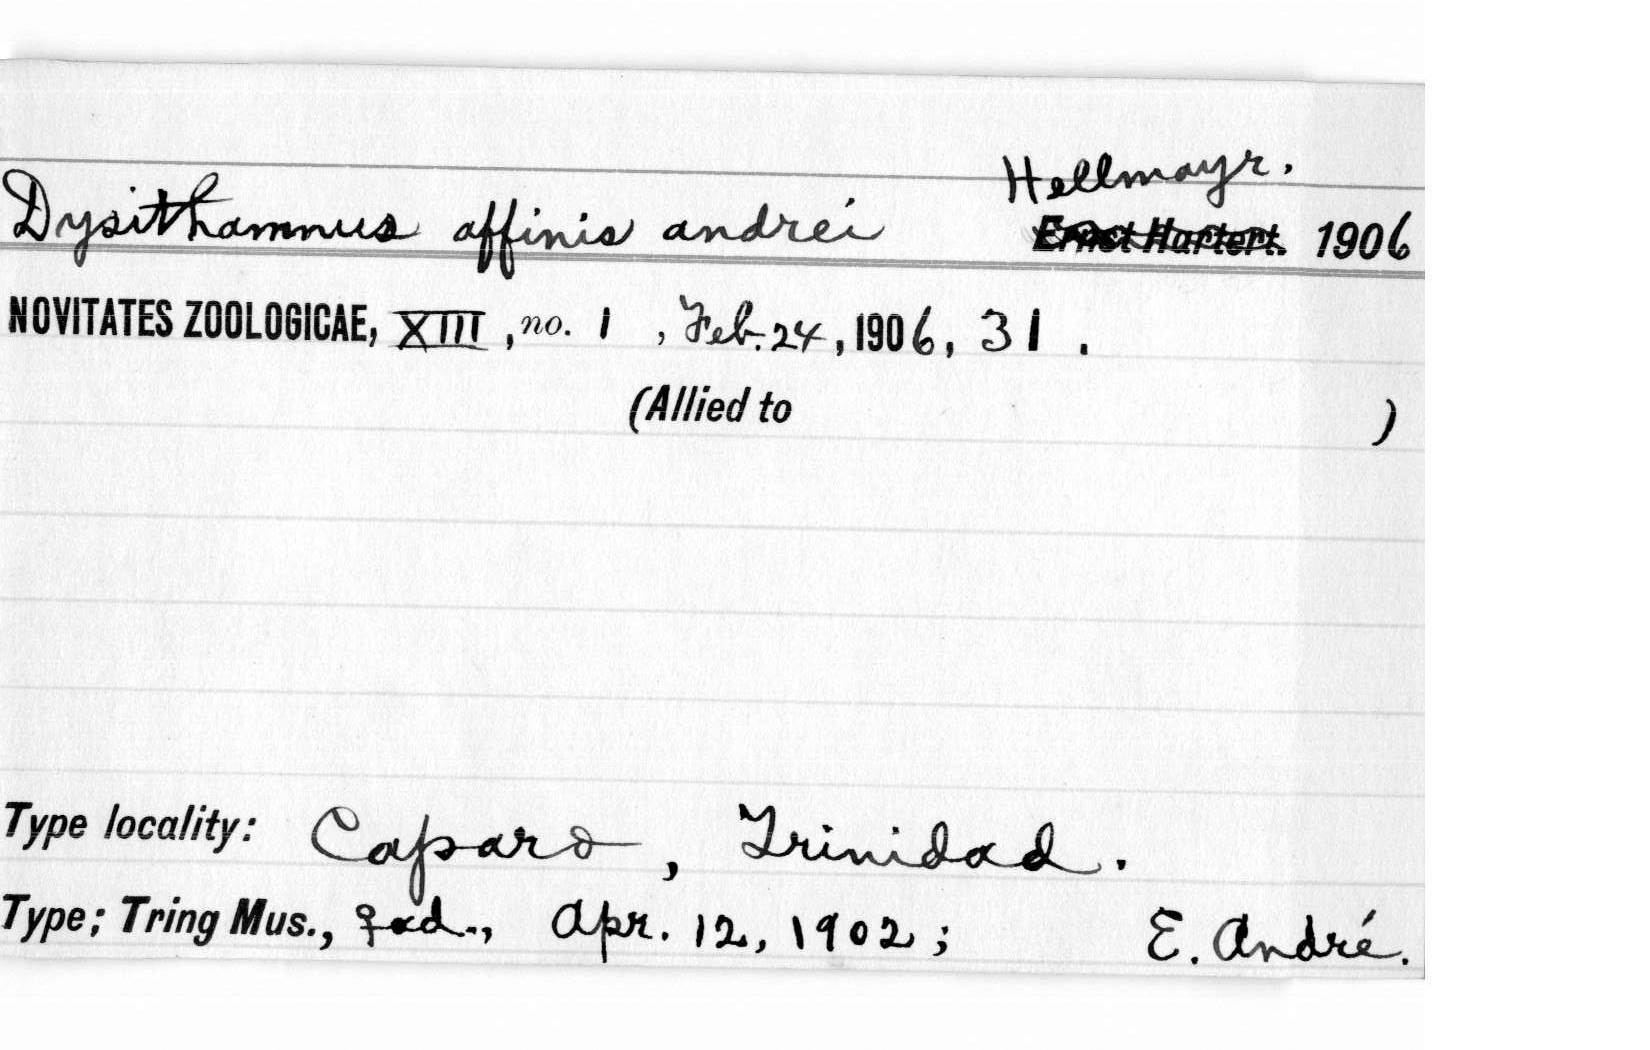 Hellmayr.
Dysithamnus affinis andréi Ernst Hartert. 1906
NOVITATES ZOOLOGICAE, XIII, no. 1, Feb. 24, 1906, 31.
(Allied to )
Type locality: Caparo, Trinidad.
Type; Tring Mus., ♀ ad., Apr. 12, 1902; E. André.